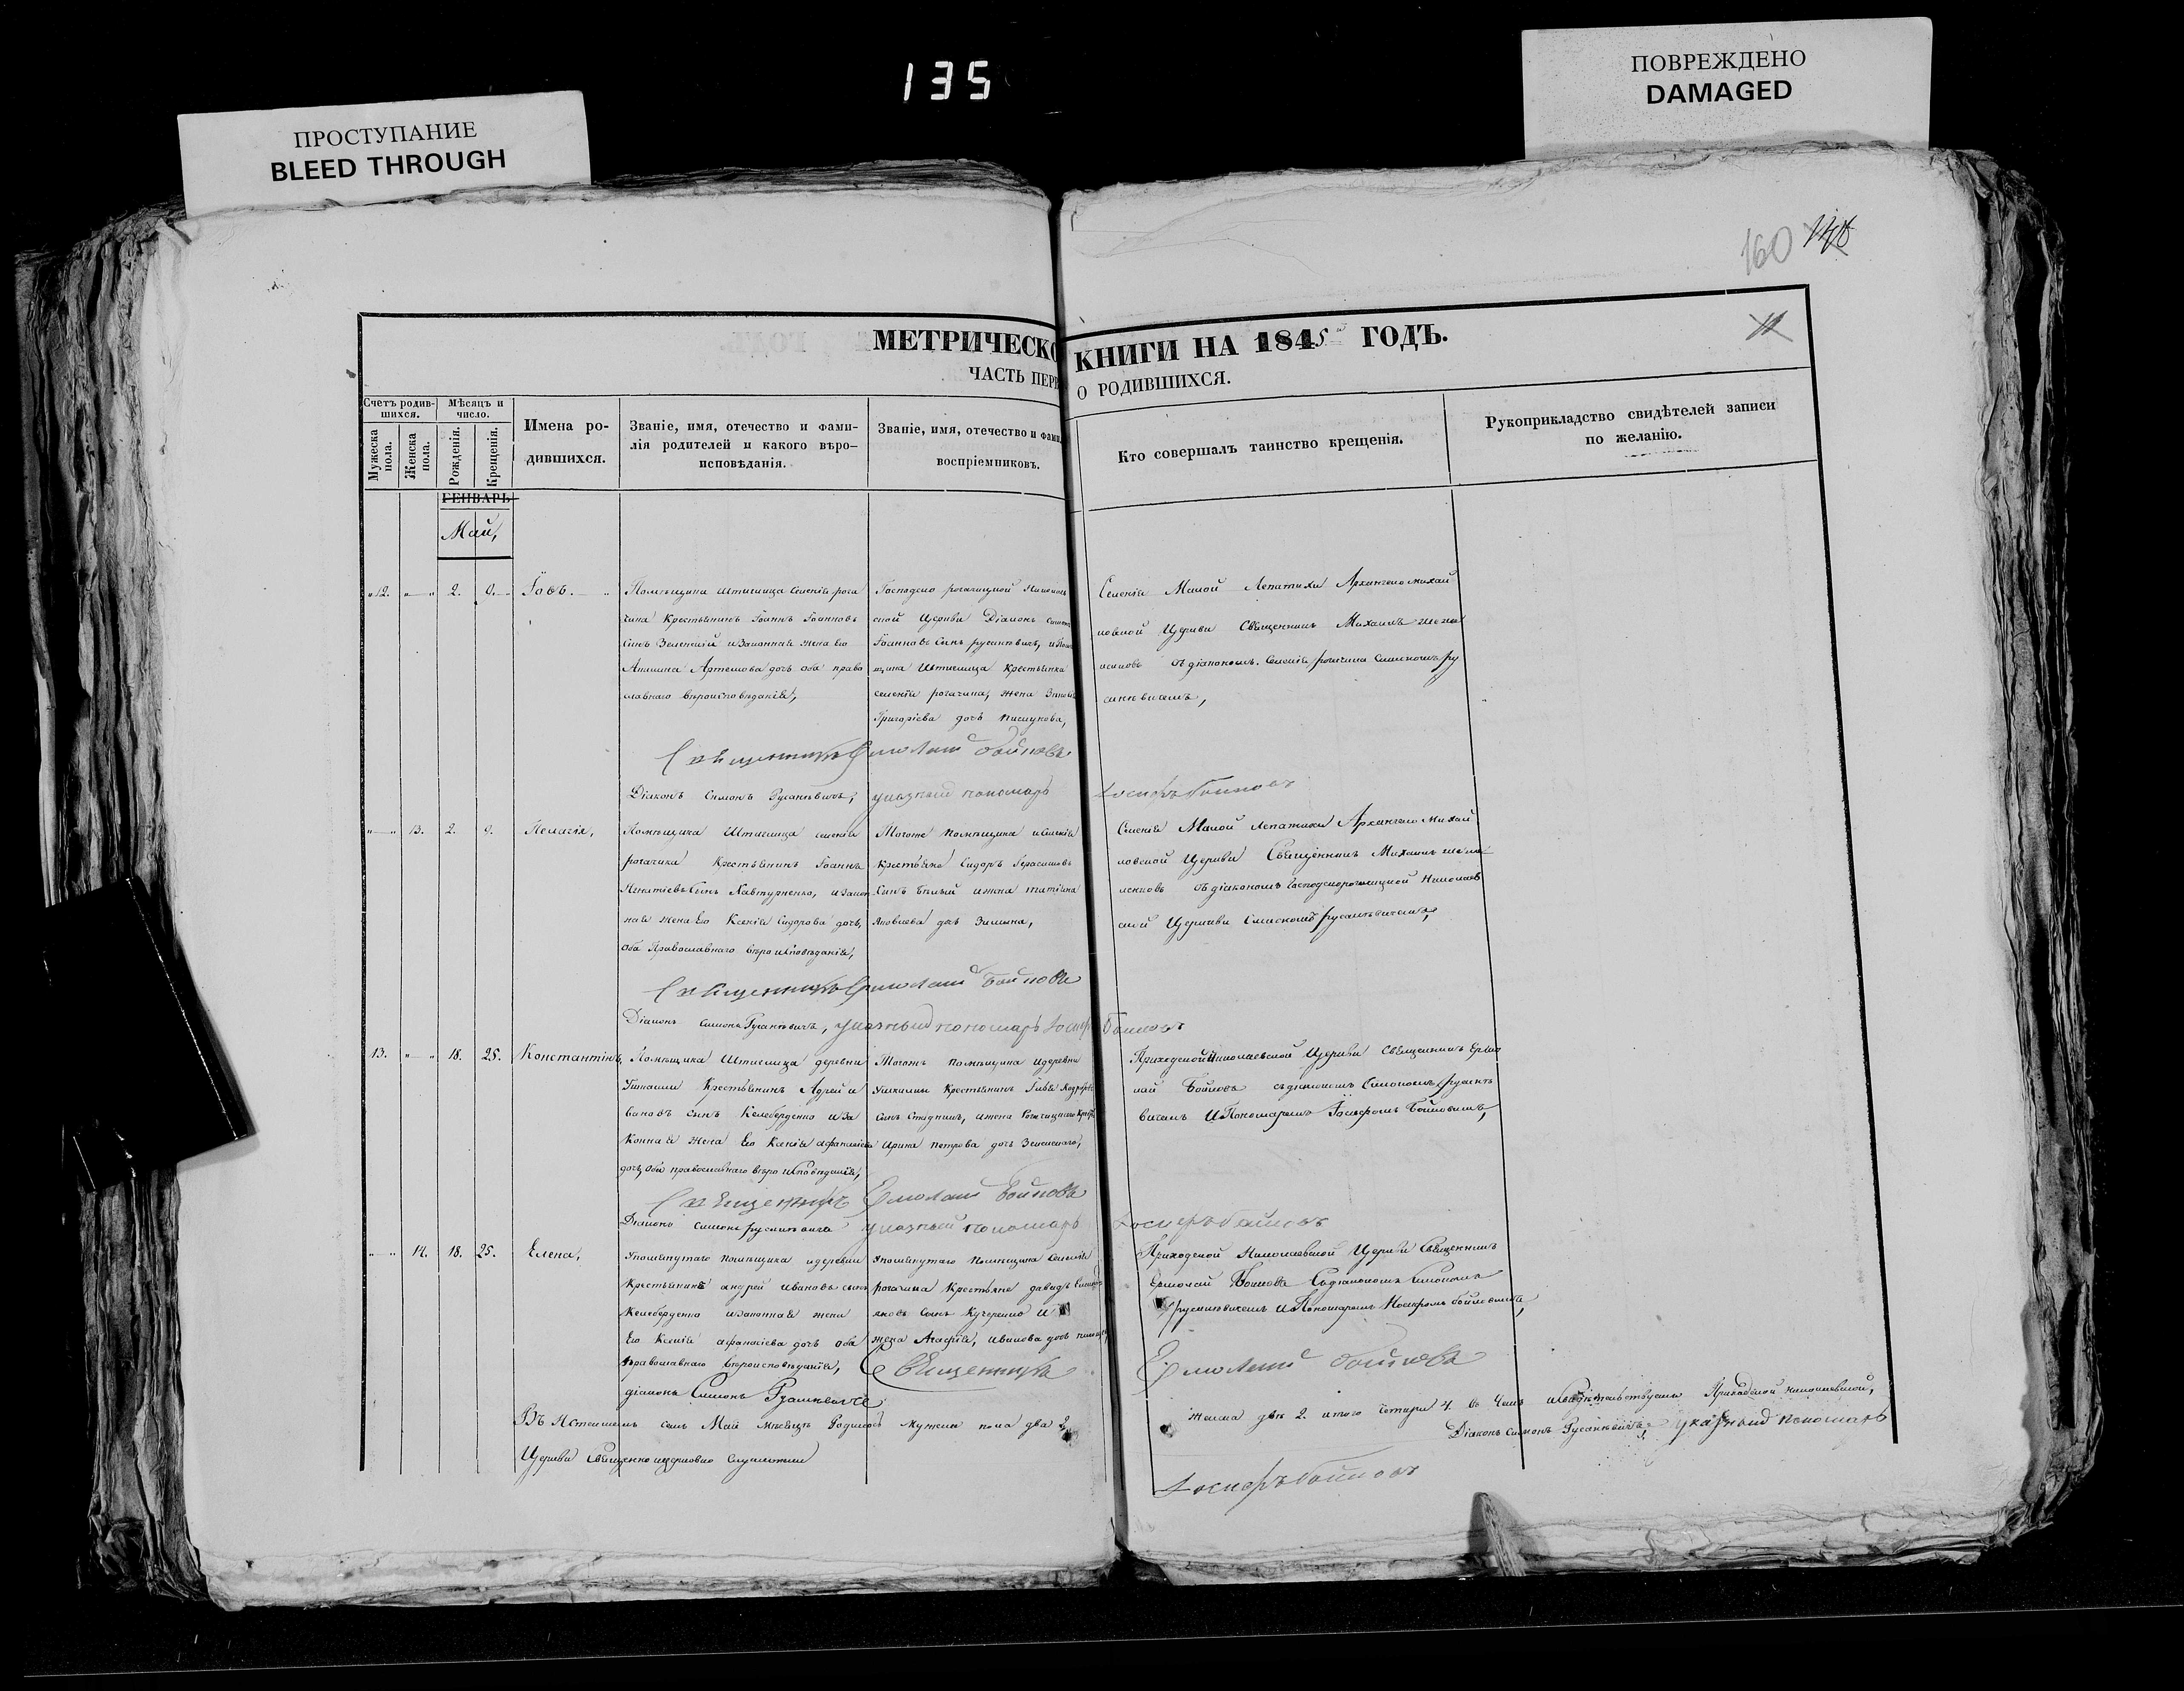 135
ПРОСТУПАНИЕ
BLEED THROUGH
ПОВРЕЖДЕНО
DAMAGED
160 148
МЕТРИЧЕСКО КНИГИ НА 1845 ГОДЪ.
11
ЧАСТЬ ПЕРВ О РОДИВШИХСЯ.
Счетъ родив-
шихся.
Мѣсяцъ и
число.
Мужеска
пола.
Женска
пола.
Рожденія.
Крещенія.
Имена ро-
дившихся.
Званіе, имя, отечество и фами-
лія родителей и какого вѣро-
исповѣданія.
Званіе, имя, отечество и фами
воспріемниковъ.
Кто совершалъ таинство крещенія.
Рукоприкладство свидѣтелей записи
по желанію.
ГЕНВАРЬ
Май,
12. 2. 9. Іовъ.
Помѣщика Штиглица селенія рога
чика Крестьянинъ Іоаннъ Іоанновъ
синъ Зеленскій и Законная жена Его
Артемова дочь оба право
славнаго вѣроисповѣданія,
рогачицкой
ской Церкви Діаконъ
Іоанновъ Синъ русаневичъ,
щика Штиглица Крестьянка
селенія рогачика, жена
Григоріева дочь
Селенія Малой Лепатихи Архангело михай
ловской Церкви Священникъ Михаилъ
съ діакономъ. селенія рогачика Симономъ ру
саневичемъ,
Священникъ Ермолай Бойновъ
Діаконъ Симонъ Русаневичъ, указный пономарь Іосифъ Бойновъ
13. 2. 9. Пелагія,
Помѣщика Штиглица селенія
рогачика Крестьянинъ Іоаннъ
Игнатіевъ Синъ и Закон
ная жена Его Ксенія Сидорова дочь,
оба Православнаго вѣроисповѣданія,
Тогоже помѣщика и Селенія
Крестьяне Сидоръ Герасимовъ
Синъ и жена татіана
Яковлева дочь
Селенія Малой Лепатихи Архангело Михай
ловской Церкви Священникъ Михаилъ
съ діакономъ Господскорогачицкой Николаев
ской Церкви Симономъ русаневичемъ,
Священникъ Ермолай Бойновъ
Діаконъ Симонъ Русаневичъ, указный пономарь Іосифъ Бойновъ
13. 18. 25. Константинъ,
Помѣщика Штиглица деревни
Крестьянинъ Андрей и
вановъ синъ Келеберденко и За
конная жена Его Ксенія афанасіева
дочь, оба православнаго вѣроисповѣданія,
Тогожъ помѣщика и деревни
Крестьянинъ
Синъ и жена
Ирина петрова дочь
Приходской Николаевской Церкви Священникъ Ермо
лай Бойновъ съ діакономъ Симономъ русане
вичемъ и Пономаремъ Іосифомъ Бойновымъ,
Священникъ Ермолай Бойновъ
Діаконъ Симонъ русаневичъ указный пономарь Іосифъ Бойновъ
14. 18. 25. Елена,
Упомянутаго помѣщика и деревни
Крестьянинъ андрей ивановъ синъ
Келеберденко и законная жена
Его Ксенія афанасіева дочь оба
православнаго вѣроисповѣданія,
Упомянутаго Помѣщика Селенія
рогачика Крестьяне давидъ
Синъ Кучеренко и
жена Агафія, иванова дочь
Приходской Николаевской Церкви Священникъ
Ермолай Бойновъ Съ діакономъ Симономъ
русаневичемъ и Пономаремъ Іосифомъ Бойновымъ,
Священникъ Ермолай Бойновъ
діаконъ Симонъ Русаневичъ
Въ семъ Май мѣсяцѣ Родилось мужска пола два 2, женска двѣ 2. итого четыри 4. въ чемъ и свидѣтельствуемъ Приходской николаевской,
Церкви Священно церковно служители
Діаконъ Симонъ Русаневичъ, указный пономарь
Іосифъ Бойновъ